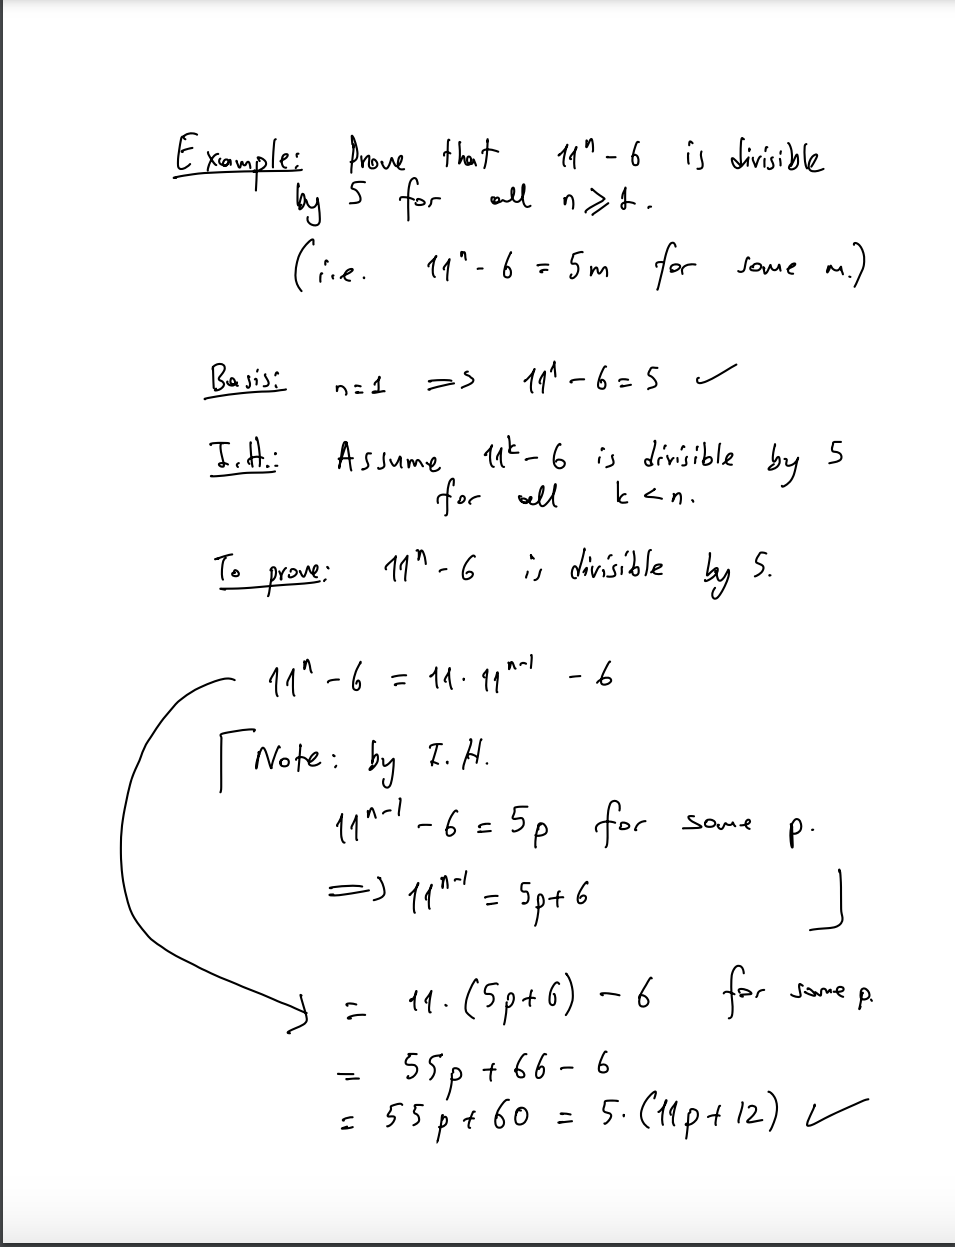 Example: Prove that 11ⁿ - 6 is divisible
by 5 for all n ≥ 1.
(i.e. 11ⁿ - 6 = 5m for some m.)
Basis: n = 1 => 11¹ - 6 = 5 ✓
I.H.: Assume 11ᵏ - 6 is divisible by 5
for all k < n.
To prove: 11ⁿ - 6 is divisible by 5.
11ⁿ - 6 = 11 · 11ⁿ⁻¹ - 6
[Note: by I.H.
11ⁿ⁻¹ - 6 = 5p for some p.
=> 11ⁿ⁻¹ = 5p + 6 ]
= 11 · (5p + 6) - 6 for some p.
= 55p + 66 - 6
= 55p + 60 = 5 · (11p + 12) ✓